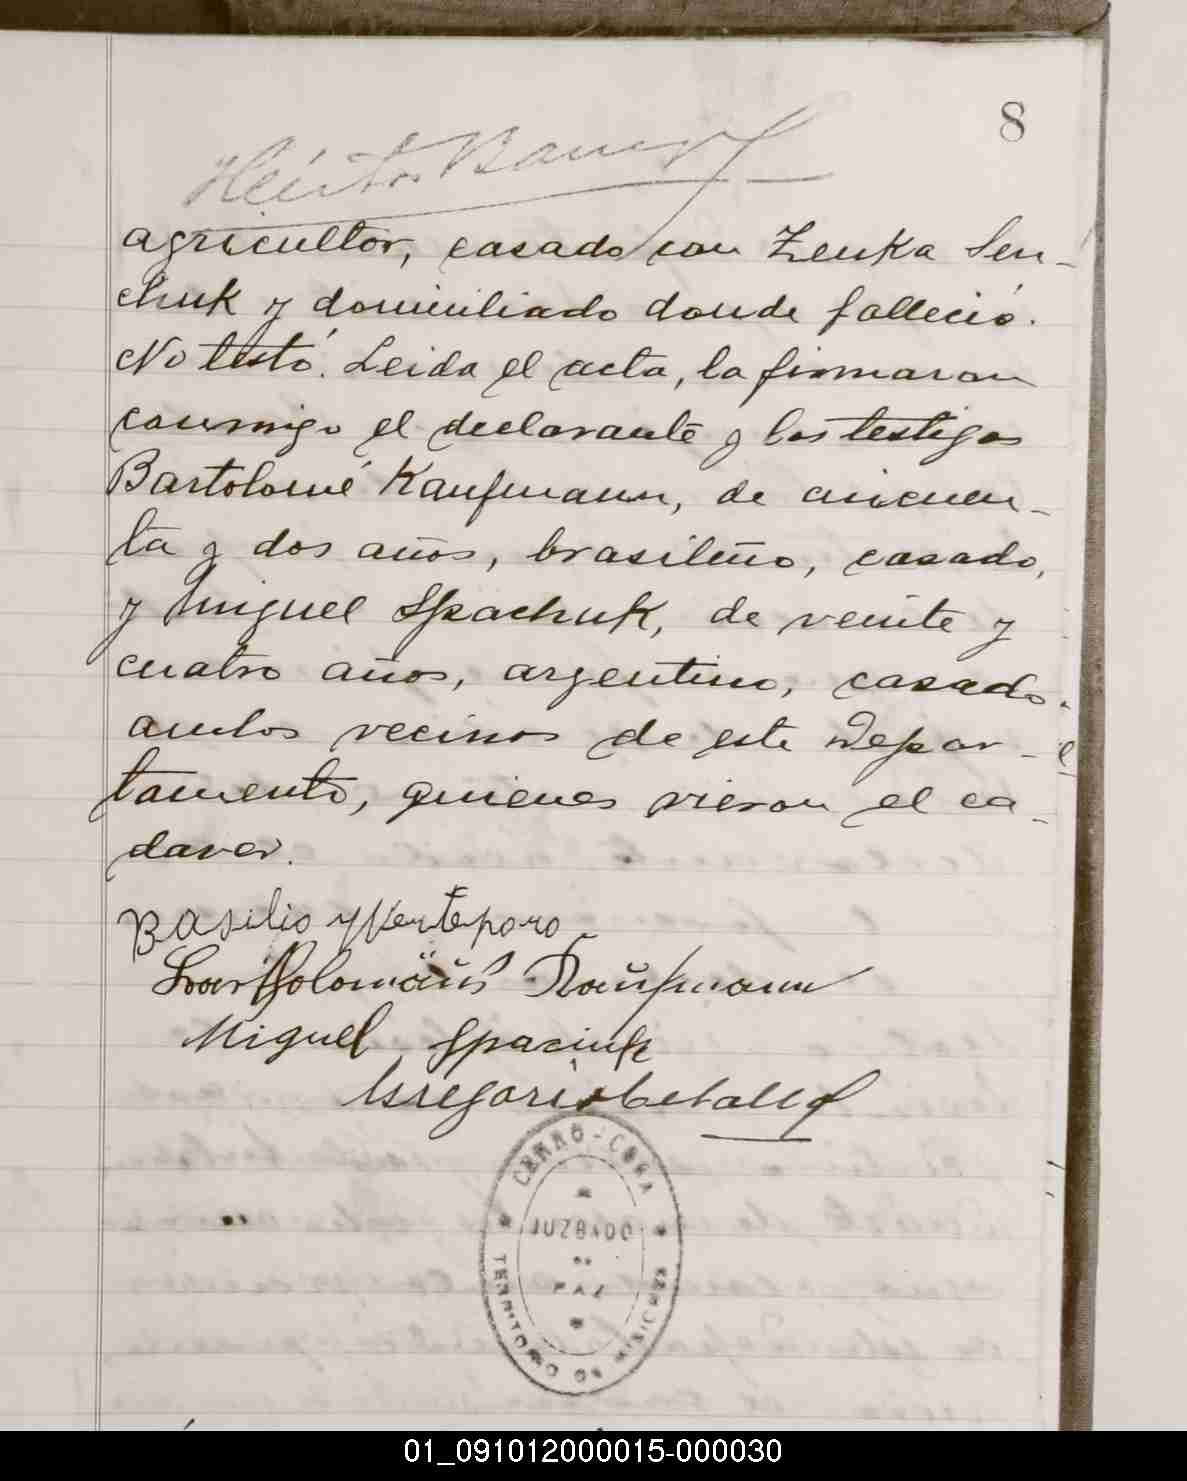 8
Héctor
agricultor, casado con Zenka Sen-
chuk y domiciliado donde falleció.
No testó. Leida el acta, la firmaron
conmigo el declarante y los testigos
Bartolomé Kaufmann, de cincuen-
ta y dos años, brasileño, casado,
y Miguel Spachuk, de veinte y
cuatro años, argentino, casado.
ambos vecinos de este Depar-
tamento, quienes vieron el ca-
daver.
Basilio
Bartholomäus Kaufmann
Miguel Spaciuk
Gregorio
CERRO-CORA
JUZGADO
DE
PAZ
TERRITORIO DE MISIONES
01_091012000015-000030